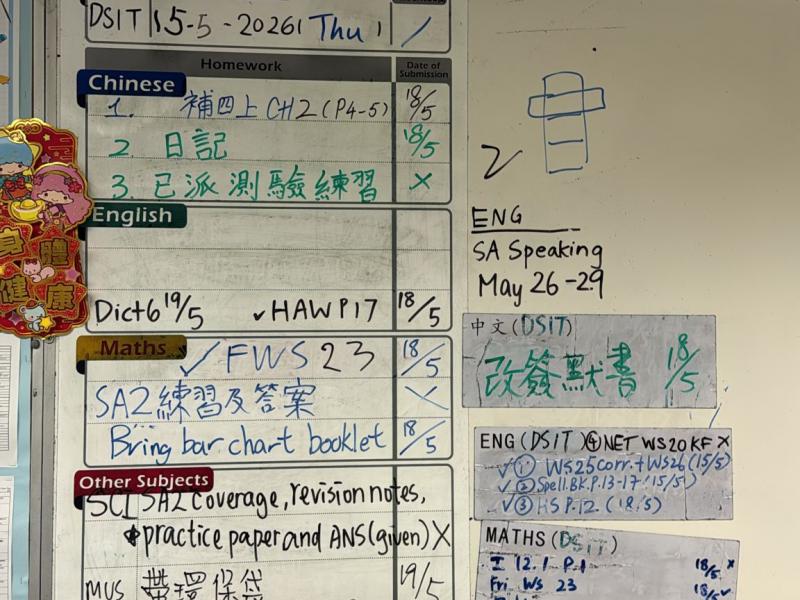 DSIT 15-5-2026( Thu )
Homework
Date of Submission
Chinese
1. 補四上 CH2 (P4-5) 18/5
2. 日記 18/5
3. 已派測驗練習 ×
English
Dict6 19/5 ✓HAW P17 18/5
Maths
✓ FWS 23 18/5
SA2 練習及答案 ×
Bring bar chart booklet 18/5
Other Subjects
SCI SA2 coverage, revision notes,
practice paper and ANS (given) X
MUS 帶環保袋 19/5
身體健康
ENG
SA Speaking
May 26-29
中文(DSIT)
改簽默書 18/5
ENG (DSIT) ④ NET WS20 KF ×
✓① WS25 corr. + WS26 (15/5)
✓② Spell.BK.P.13-17 (15/5)
✓③ HS P.12. (18.5)
MATHS (DSIT)
I 12.1 P.1 18/5 ×
Fri WS 23 18/5 ✓